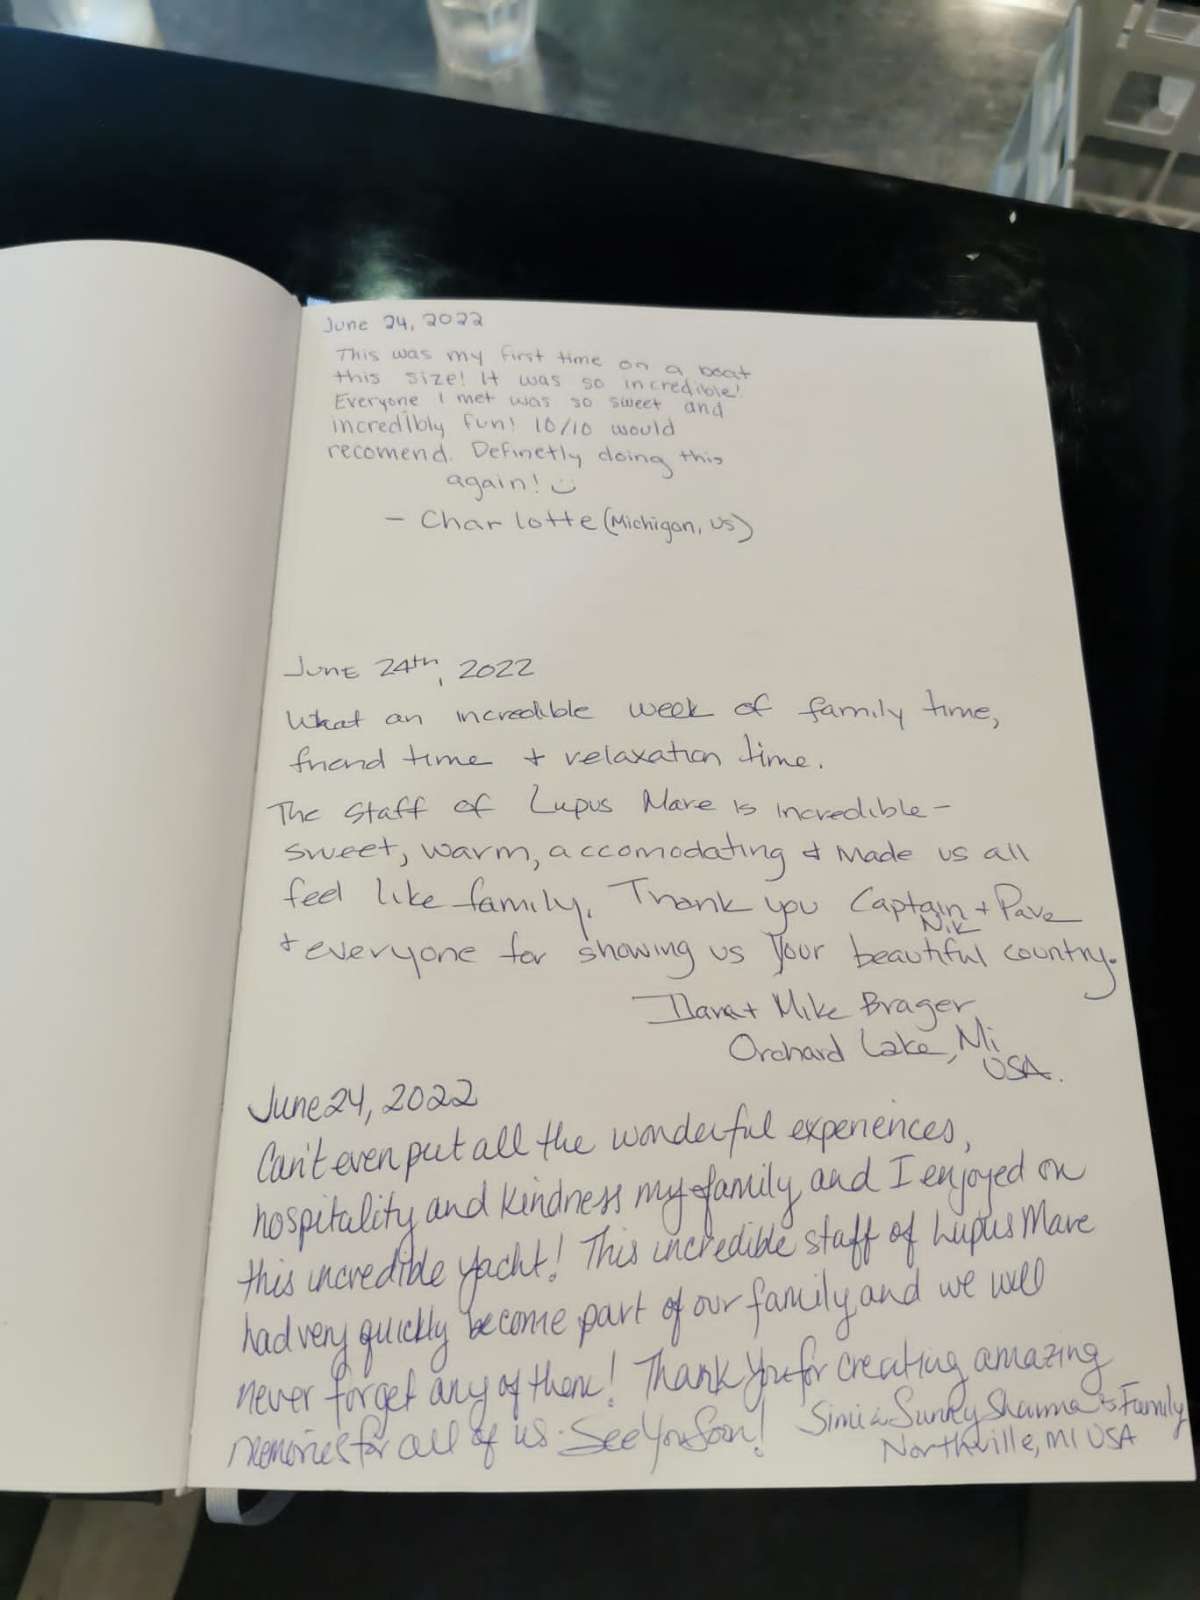 June 24, 2022
This was my first time on a boat
this size! It was so incredible!
Everyone I met was so sweet and
incredibly fun! 10/10 would
recomend. Definetly doing this
again!
- Charlotte (Michigan, US)
June 24th, 2022
What an incredible week of family time,
friend time + relaxation time.
The staff of Lupus Mare is incredible -
sweet, warm, accomodating & made us all
feel like family. Thank you Captain + Pave
Nik
+ everyone for showing us your beautiful country.
Ilana + Mike Brager
Orchard Lake, Mi
USA.
June 24, 2022
Can't even put all the wonderful experiences,
hospitality and kindness my family and I enjoyed on
this incredible yacht! This incredible staff of Lupus Mare
had very quickly become part of our family and we will
never forget any of them! Thank you for creating amazing
memories for all of us. See You Soon!
Simi & Sunny Sharma & Family
Northville, MI USA